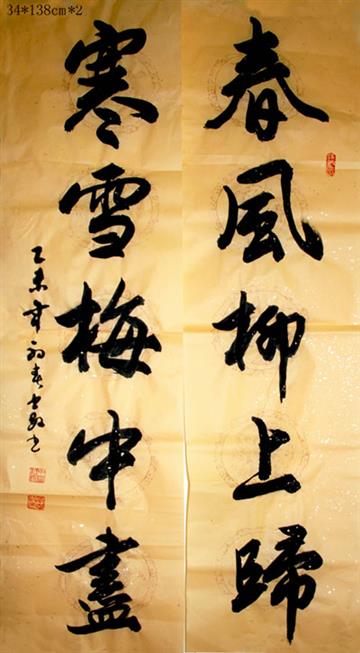 34*138cm*2
春風柳上歸
寒雪梅中盡
乙未年初春書